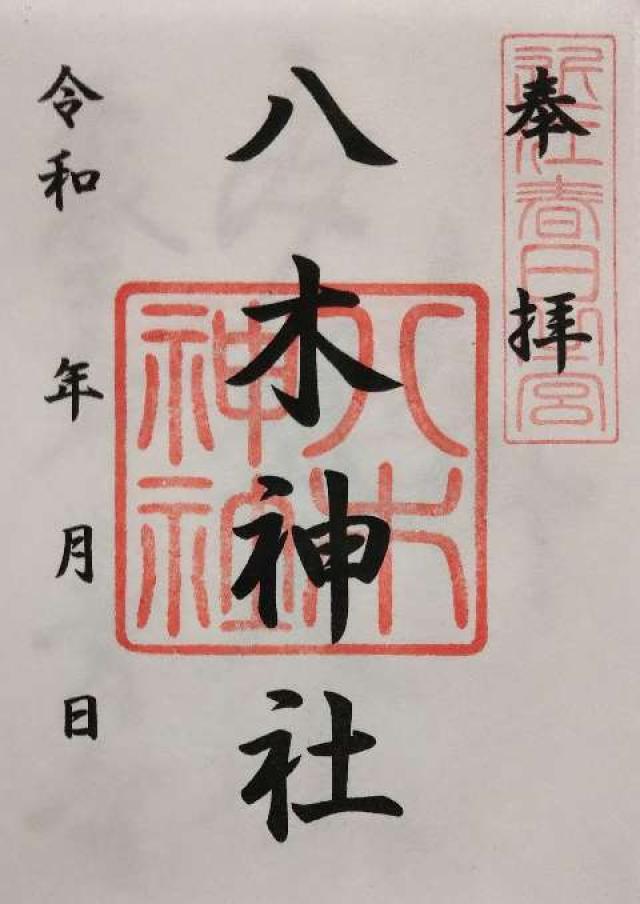 奉拝
近江春日宮
八木神社
八木
神社
令和 年 月 日